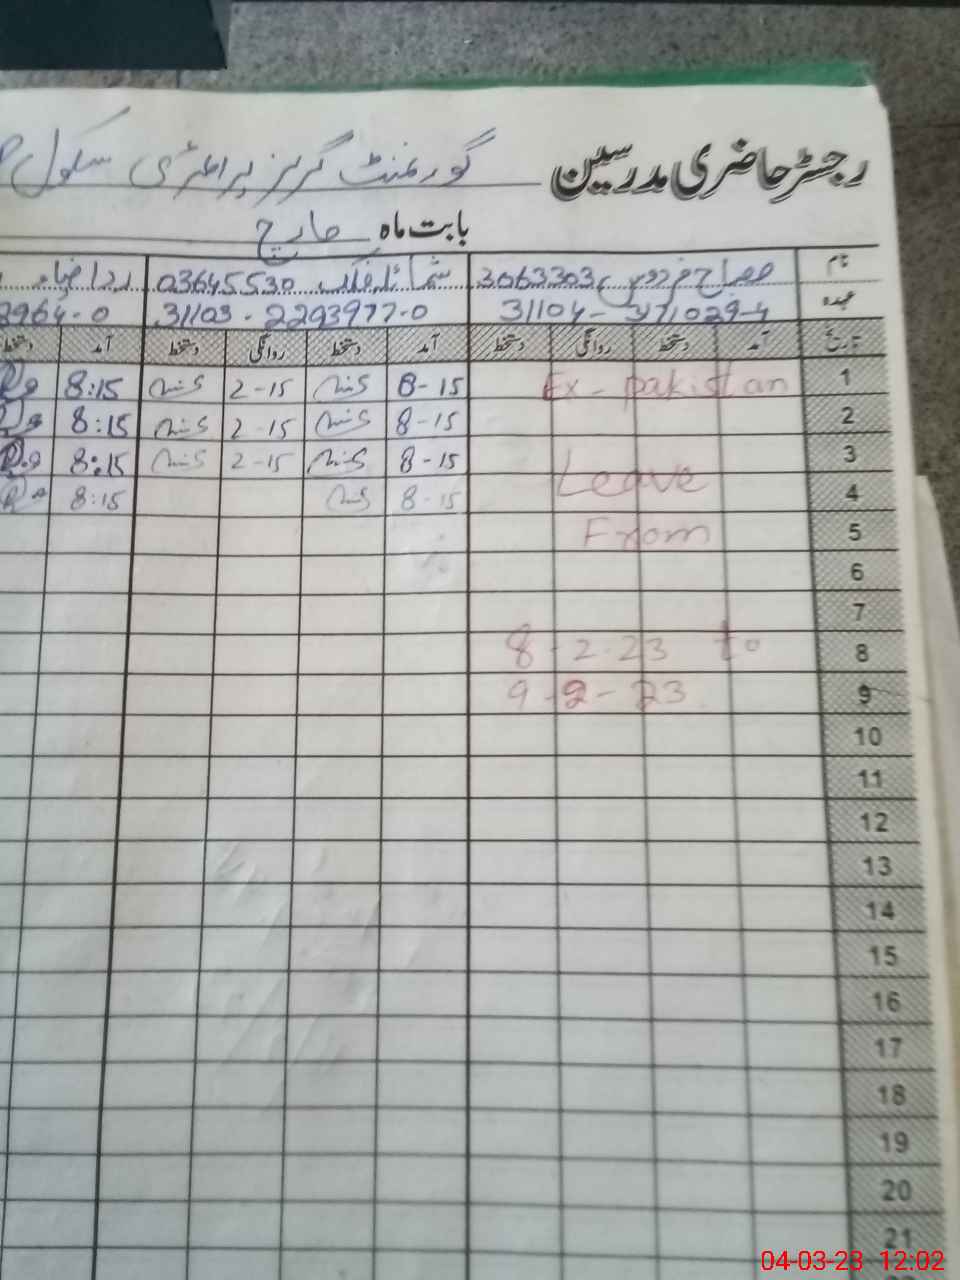 رجسٹر حاضری مدرسین گورنمنٹ گرلز پرائمری سکول
بابت ماہ مارچ
نام 3063303 شمائلہ 03645530 ردا ضیاء
عہدہ 31104- 31103-2293977-0 8964-0
تاریخ آمد دستخط روانگی دستخط آمد دستخط روانگی دستخط آمد دستخط
1 Ex-pakistan 8-15 2-15 8:15
2 8-15 2-15 8:15
3 8-15 2-15 8:15
4 Leave 8-15 8:15
5 From
6
7
8 8-2-23 to
9 9-2-23
10
11
12
13
14
15
16
17
18
19
20
21
04-03-23 12:02